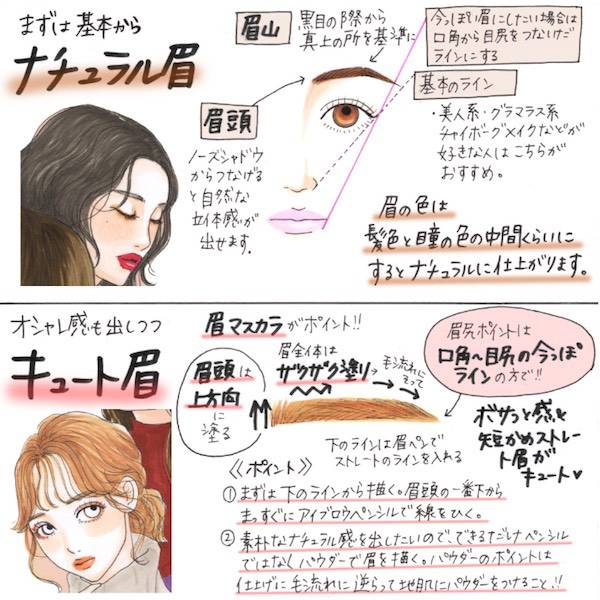 まずは基本から
ナチュラル眉
眉山
黒目の際から
真上の所を基準に
今っぽい眉にしたい場合は
口角から目尻をつないだ
ラインにする
基本のライン
・美人系・グラマラス系
チャイボーグメイクなどが
好きな人はこちらが
おすすめ。
眉頭
ノーズシャドウ
からつなげる
と自然な
立体感が
出せます。
眉の色は
髪色と瞳の色の中間くらいに
するとナチュラルに仕上がります。
オシャレ感も出しつつ
キュート眉
眉マスカラがポイント!!
眉頭は
上方向
に
塗る
眉全体は
ザクザク塗り
毛流れに
そって
下のラインは眉ペンで
ストレートのラインを入れる
眉尻ポイントは
口角〜目尻の今っぽ
ラインの方で!!
ボサっと感と
短かめストレー
ト眉が
キュート♥
《ポイント》
① まずは下のラインから描く。眉頭の一番下から
まっすぐにアイブロウペンシルで線をひく。
② 素朴なナチュラル感を出したいので、できるだけペンシル
ではなくパウダーで眉を描く。パウダーのポイントは
仕上げに毛流れに逆らって地肌にパウダーをつけること!!